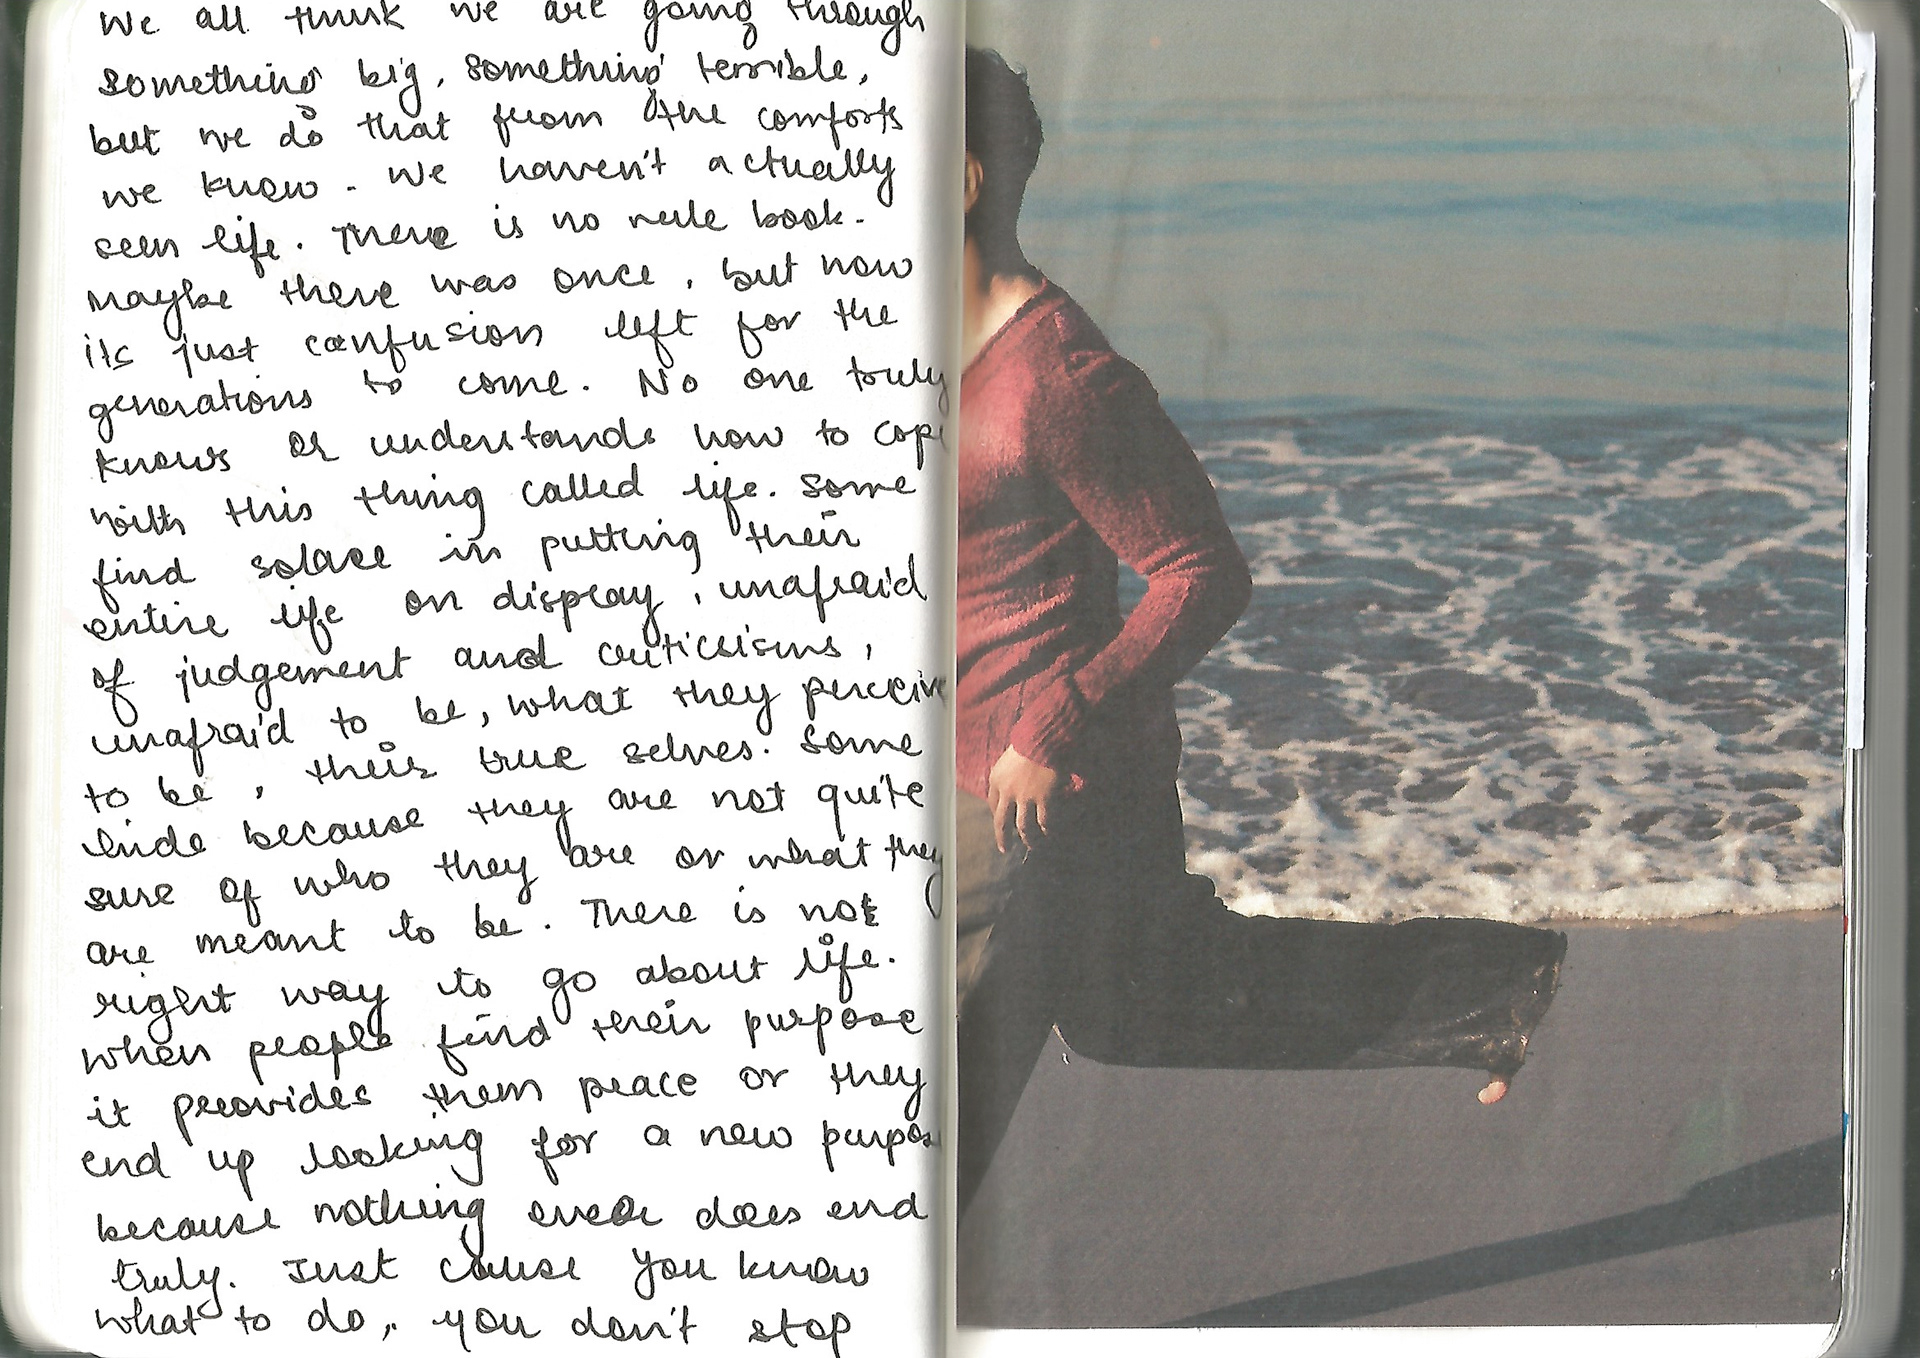 We all think we are going through
something big, something terrible,
but we do that from the comforts
we know. We haven't actually
seen life. There is no rule book.
maybe there was once, but now
its just confusion left for the
generations to come. No one truly
knows or understands how to cope
with this thing called life. Some
find solace in putting their
entire life on display, unafraid
of judgement and criticisms,
unafraid to be, what they perceive
to be, their true selves. Some
hide because they are not quite
sure of who they are or what they
are meant to be. There is not
right way to go about life.
when people find their purpose
it provides them peace or they
end up looking for a new purpose
because nothing ever does end
truly. Just cause you know
what to do, you don't stop